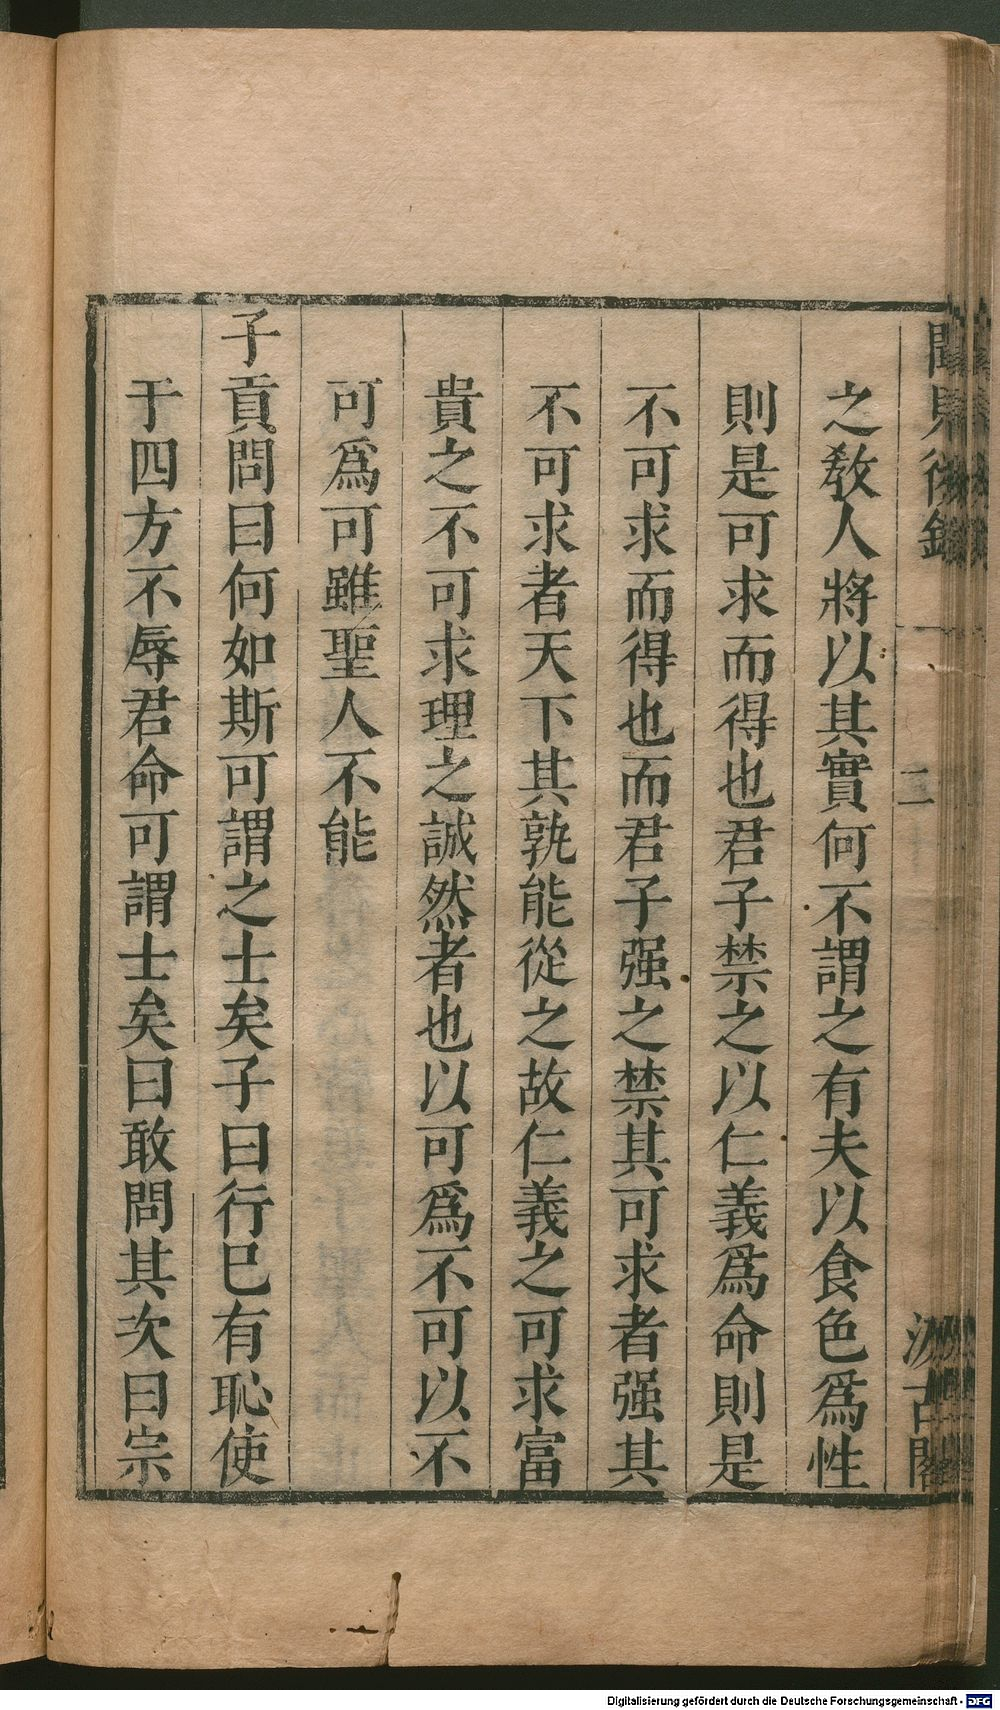 聞見後錄
二
汲古閣
之教人將以其實何不謂之有夫以食色爲性
則是可求而得也君子禁之以仁義爲命則是
不可求而得也而君子强之禁其可求者强其
不可求者天下其孰能從之故仁義之可求富
貴之不可求理之誠然者也以可爲不可以不
可爲可雖聖人不能
子貢問曰何如斯可謂之士矣子曰行巳有恥使
于四方不辱君命可謂士矣曰敢問其次曰宗
Digitalisierung gefördert durch die Deutsche Forschungsgemeinschaft - DFG